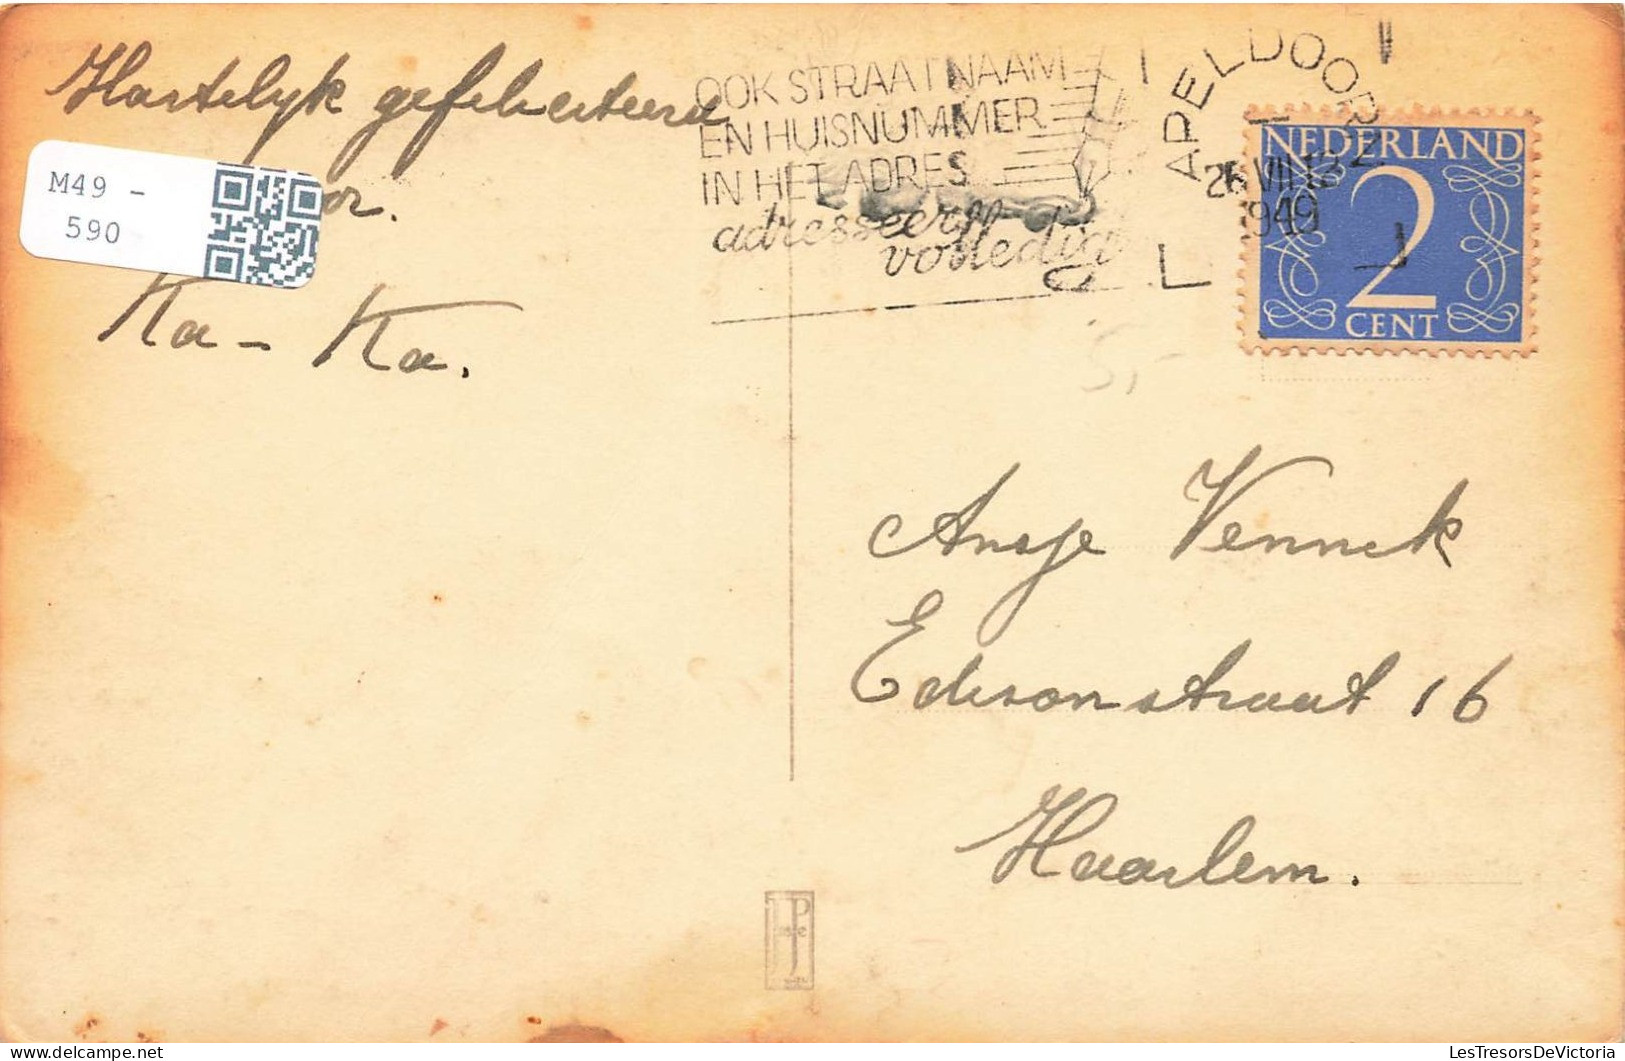 Hartelijk gefeliciteerd
Ka - Ka.
M49 -
590
OOK STRAATNAAM
EN HUISNUMMER
IN HET ADRES
adresseer
volledig
APELDOORN
1949
NEDERLAND
2
CENT
5,-
Ansje Vennek
Edisonstraat 16
Haarlem.
LesTresorsDeVictoria
www.delcampe.net